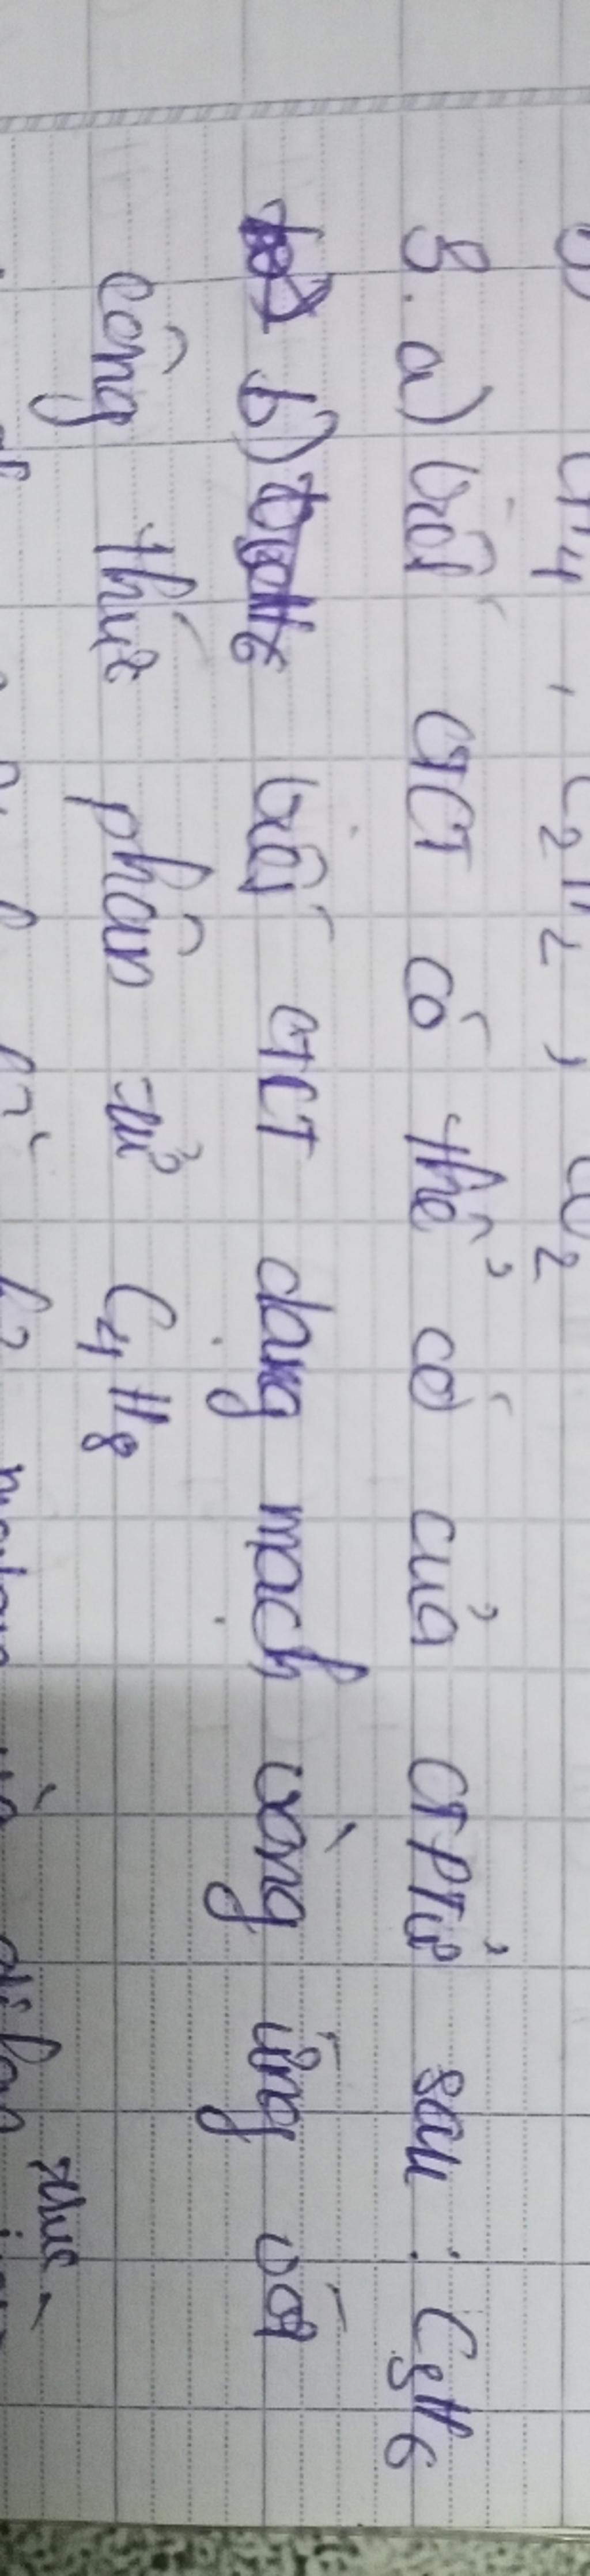 CH4, C2H2, CO2
8. a) Viết CTCT có thể có của CTPTử sau: C3H6
b) viết CTCT dạng mạch vòng ứng với
công thức phân tử C4H8